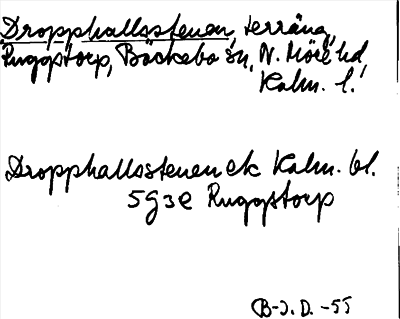 Dropphallsstenen, terräng,
Ruggstorp, Bäckebo sn, N. Möre hd,
Kalm. l.
Dropphallsstenen ek Kalm. bl.
5G3e Ruggstorp
B-J. D. -55